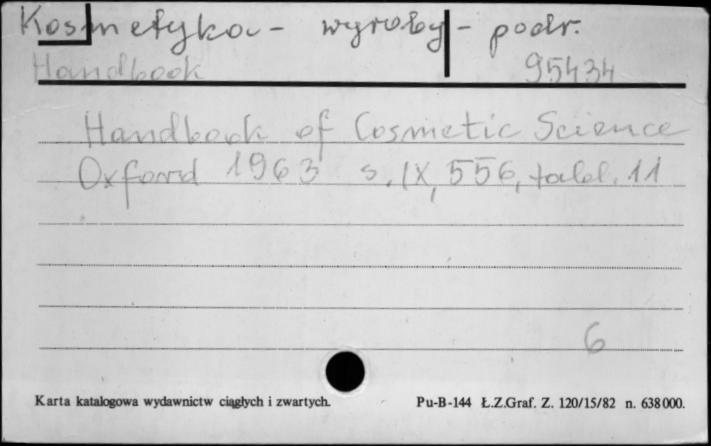 Kosmetyka - wyroby - podr.
Handbook 95434
Handbook of Cosmetic Science
Oxford 1963 s. IX, 556, tabl. 11
6
Karta katalogowa wydawnictw ciągłych i zwartych. Pu-B-144 Ł.Z.Graf. Z. 120/15/82 n. 638000.